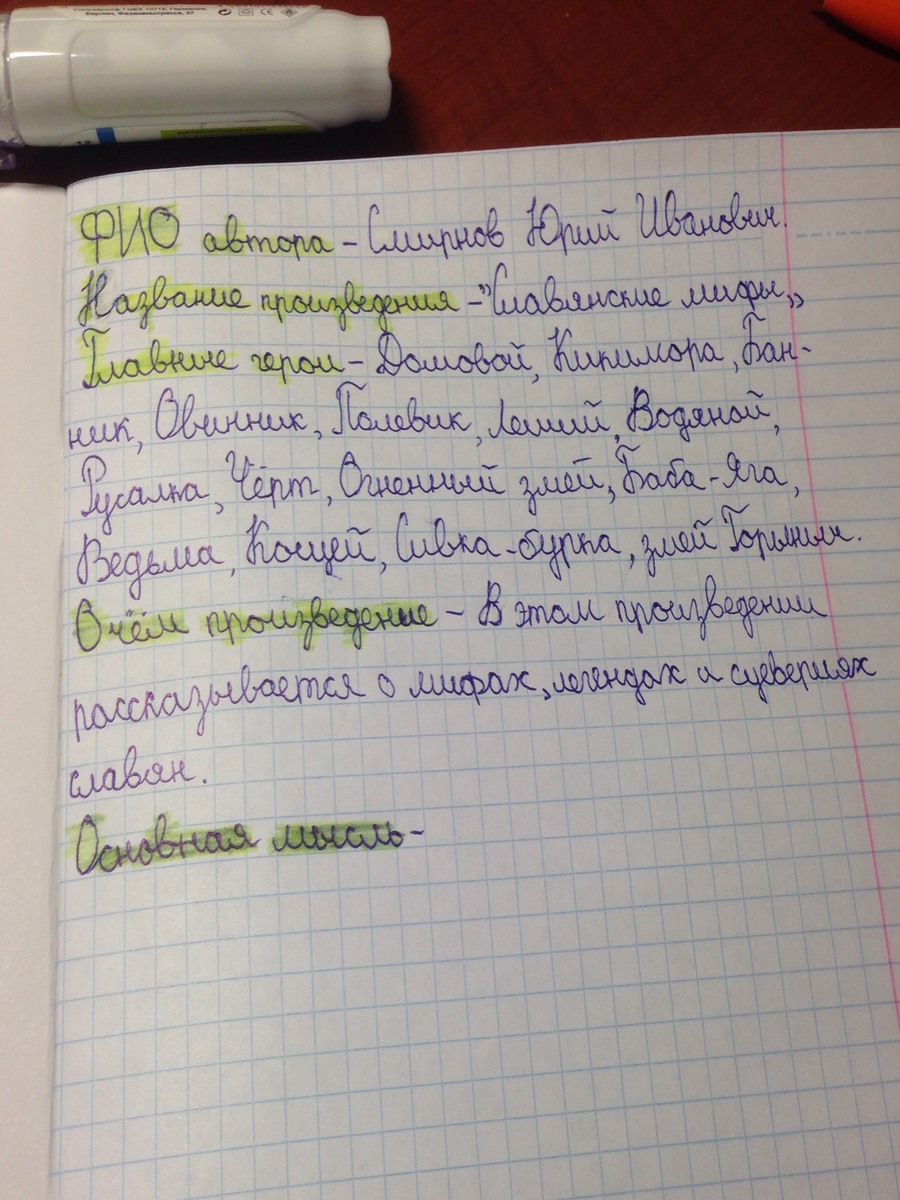 Берлин, Фазаненштрассе, 37
12
ФИО автора – Смирнов Юрий Иванович.
Название произведения –"Славянские мифы„
Главные герои – Домовой, Кикимора, Бан-
ник, Овинник, Полевик, Леший, Водяной,
Русалка, Чёрт, Огненный змей, Баба-Яга,
Ведьма, Кощей, Сивка-бурка, змей Горыныч.
О чём произведение – В этом произведении
рассказывается о мифах, легендах и суевериях
славян.
Основная мысль–